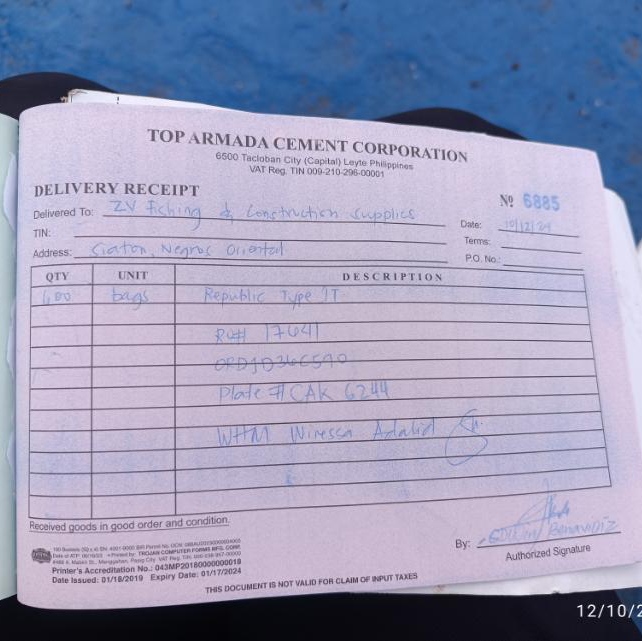 TOP ARMADA CEMENT CORPORATION
6500 Tacloban City (Capital) Leyte Philippines
VAT Reg. TIN 009-210-296-00001
DELIVERY RECEIPT
Nº 6885
Delivered To: ZV Fishing & Construction Supplies
Date: 10/12/24
TIN:
Terms:
Address: Siaton, Negros Oriental
P.O. No.:
QTY UNIT DESCRIPTION
600 bags Republic Type 1T
17641
Plate # CAK 6244
WHM
Received goods in good order and condition.
By: Benavidez
Authorized Signature
TROJAN COMPUTER FORMS MFG. CORP.
Printer's Accreditation No.: 043MP20180000000018
Date Issued: 01/16/2019 Expiry Date: 01/17/2024
THIS DOCUMENT IS NOT VALID FOR CLAIM OF INPUT TAXES
12/10/2